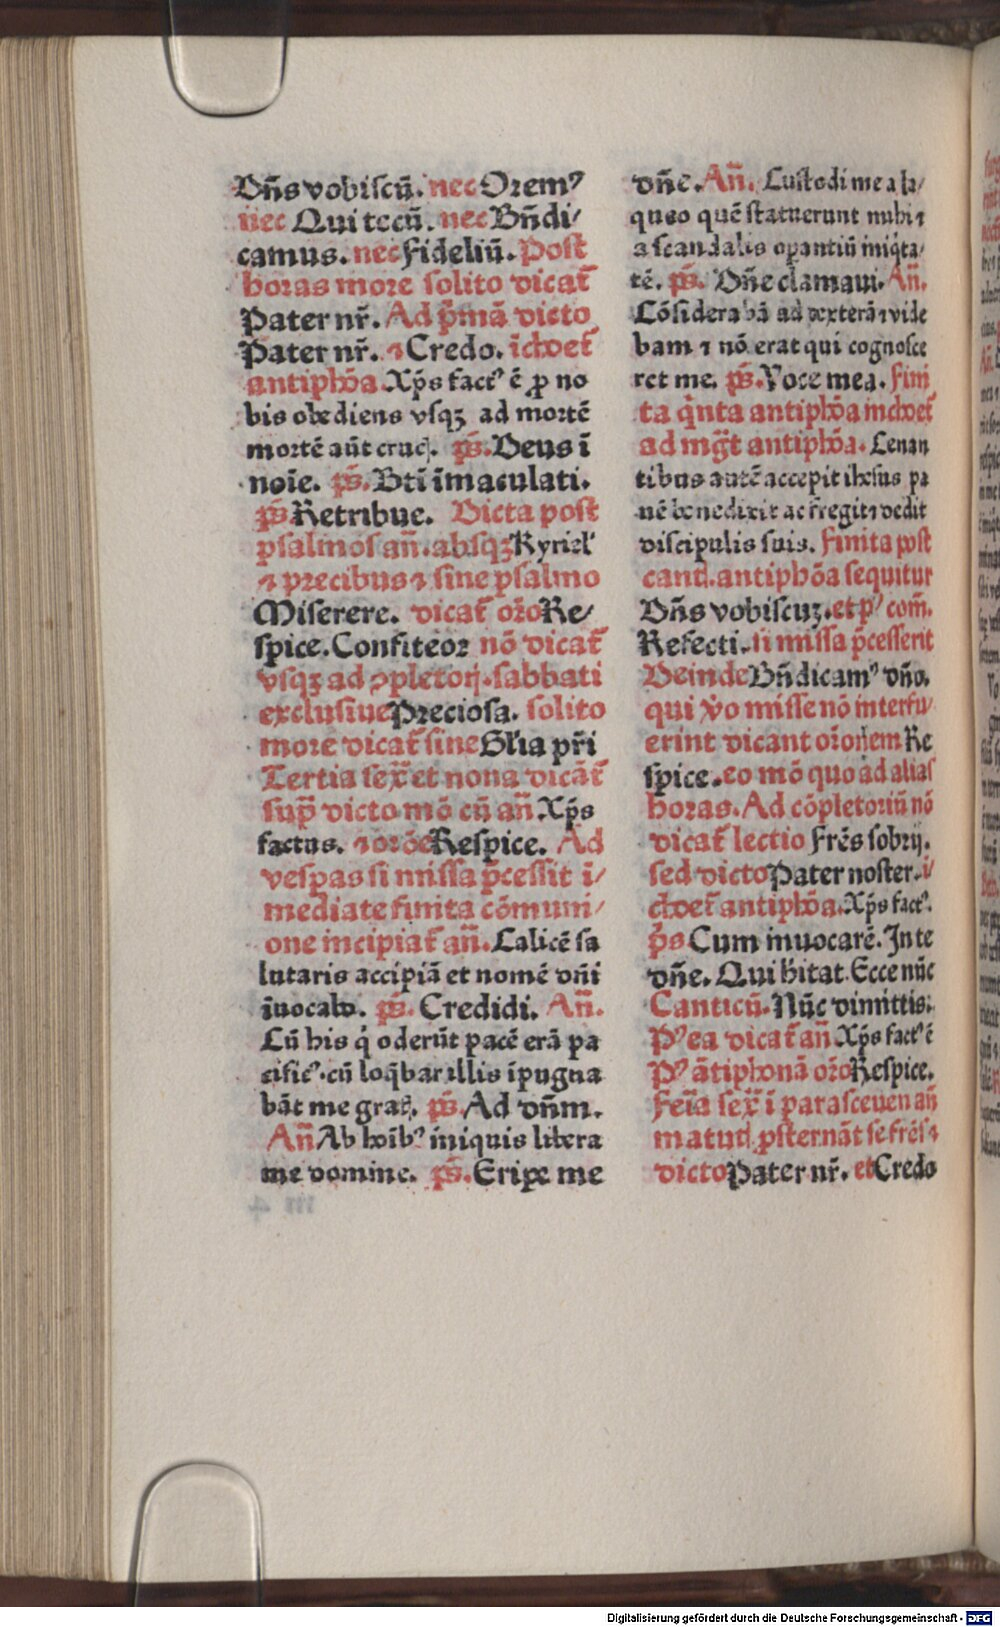 Dn̄s vobiscū. nec Oremꝰ
nec Qui tecū. nec Bn̄di/
camus. nec Fideliū. Post
horas more solito dicat᷑
Pater nr̄. Ad p̄mā dicto
Pater nr̄. ⁊ Credo. īchoet᷑
antiphōa Xp̄s factꝰ ē ꝓ no
bis obediens vsqꝫ ad mortē
mortē aūt crucꝭ. ps̄. Deus ī
noīe. ps̄. Bt̄i īmaculati.
ps̄ Retribue. Dicta post
psalmos an̄. absqꝫ Kyriel'
⁊ precibus ⁊ sine psalmo
Miserere. dicat᷑ orō Re/
spice. Confiteor nō dicat᷑
vsqꝫ ad ꝯpletorꝭ. sabbati
exclusiue Preciosa. solito
more dicat᷑ sine Gl'ia pr̄i
Tertia sex̄ et nona dicāt᷑
sup̄ dicto mō cū an̄ Xp̄s
factus. ⁊ orōe Respice. Ad
vesp̄as si missa p̄cessit ī/
mediate finita cōmuni/
one incipiat᷑ an̄. Calicē sa
lutaris accipiā et nomē dn̄i
īuocabo. ps̄. Credidi. An̄.
Cū his q̇ oderūt pacē erā pa
cificꝰ. cū loq̄bar illis īpugna
bāt me gratꝭ. ps̄. Ad dn̄m.
An̄ Ab hoībꝰ iniquis libera
me domine. ps̄. Eripe me
dn̄e. An̄. Custodi me a la/
queo quē statuerunt michi ⁊
a scandalis opantiū iniq̇ta/
tē. ps̄. Dn̄e clamaui. An̄.
Cōsiderabā ad dexterā ⁊ vide
bam ⁊ nō erat qui cognosce
ret me. ps̄. Voce mea. Fini
ta q̇nta antiphōa inchoet᷑
ad mg̈t antiphōa. Cenan
tibus autē accepit ihesus pa
nē benedixit ac fregit ⁊ dedit
discipulis suis. Finita post
cantꝭ. antiphōa sequitur
Dn̄s vobiscuꝫ. et pꝰ com̄.
Refecti. si missa p̄cesserit
Deinde Bn̄dicamꝰ dn̄o.
qui v̊o misse nō interfu/
erint dicant orōnem Re
spice. eo mō quo ad alias
horas. Ad cōpletoriū nō
dicat᷑ lectio Fr̄es sobrij.
sed dicto Pater noster. i/
choet᷑ antiphōa. Xp̄s factꝰ.
ps̄ Cum inuocarē. In te
dn̄e. Qui h̄itat. Ecce nūc
Canticū. Nūc dimittis.
Pꝰea dicat᷑ an̄ Xp̄s factꝰ ē
Pꝰ ātiphonā orō Respice.
Fer̄ia sex̄ ī parasceuen an̄
matutꝭ ꝓsternāt se fr̄es ⁊
dicto Pater nr̄. et Credo
Digitalisierung gefördert durch die Deutsche Forschungsgemeinschaft - DFG